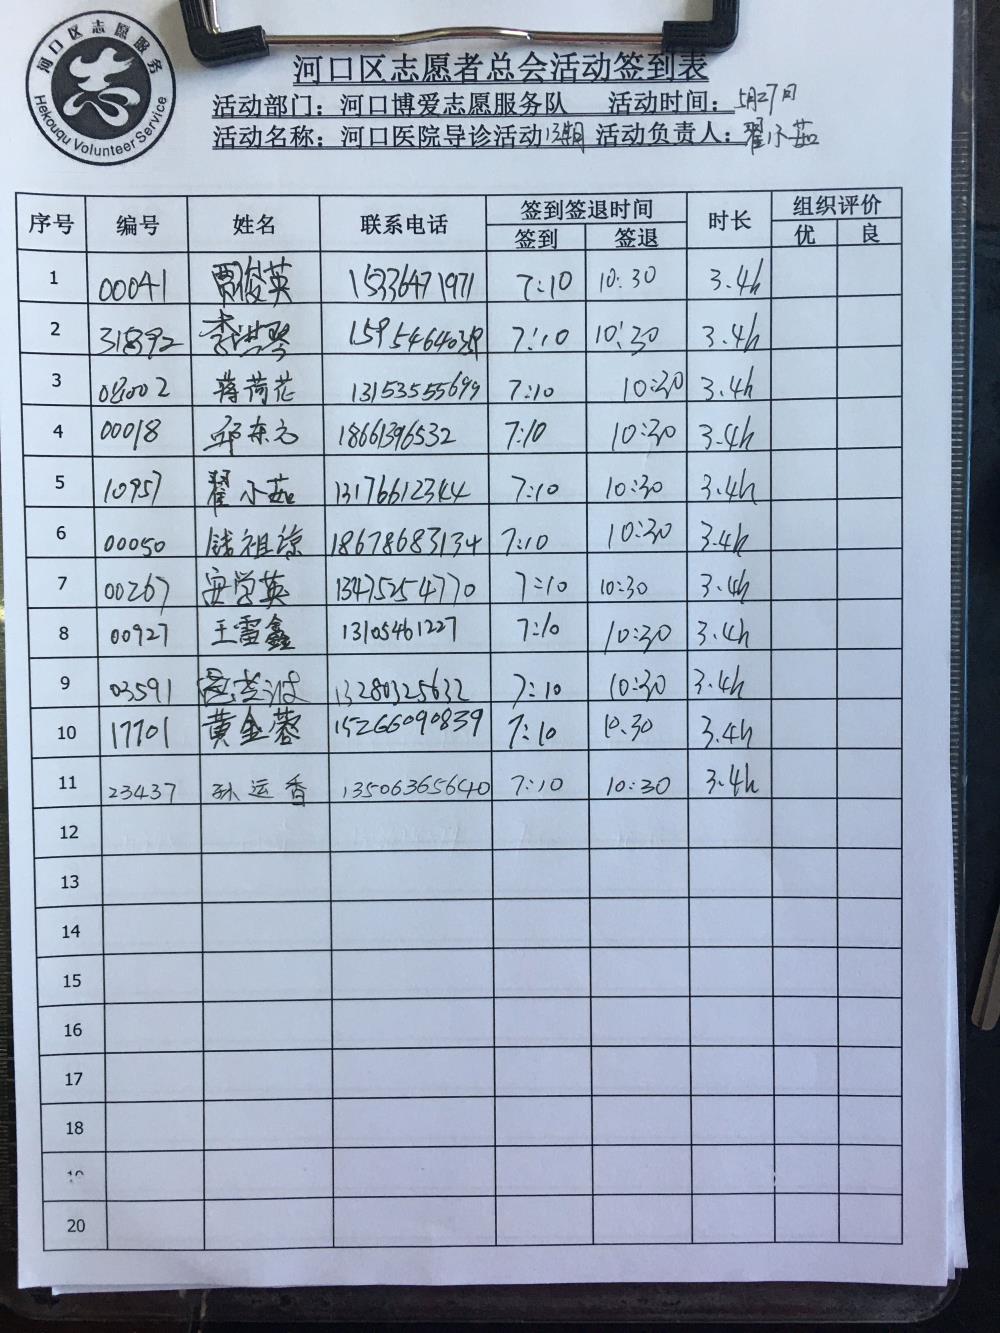 河口区志愿服务
Hekouqu Volunteer Service
河口区志愿者总会活动签到表
活动部门：河口博爱志愿服务队 活动时间：5月27日
活动名称：河口医院导诊活动13期 活动负责人：翟小茹
序号 编号 姓名 联系电话 签到签退时间 时长 组织评价
签到 签退 优 良
1 00041 贾俊英 15336471971 7:10 10:30 3.4h
2 31892 李洪琴 7:10 10:30 3.4h
3 08002 蒋荷花 13153555699 7:10 10:30 3.4h
4 00018 邱东方 18661396532 7:10 10:30 3.4h
5 10957 翟小茹 13176612344 7:10 10:30 3.4h
6 00050 钱祖谅 18678683134 7:10 10:30 3.4h
7 00267 安学英 13475254770 7:10 10:30 3.4h
8 00927 王雷鑫 13105461227 7:10 10:30 3.4h
9 03591 13280325632 7:10 10:30 3.4h
10 17701 黄金蓉 15266090839 7:10 10:30 3.4h
11 23437 孙运香 13506365640 7:10 10:30 3.4h
12
13
14
15
16
17
18
20